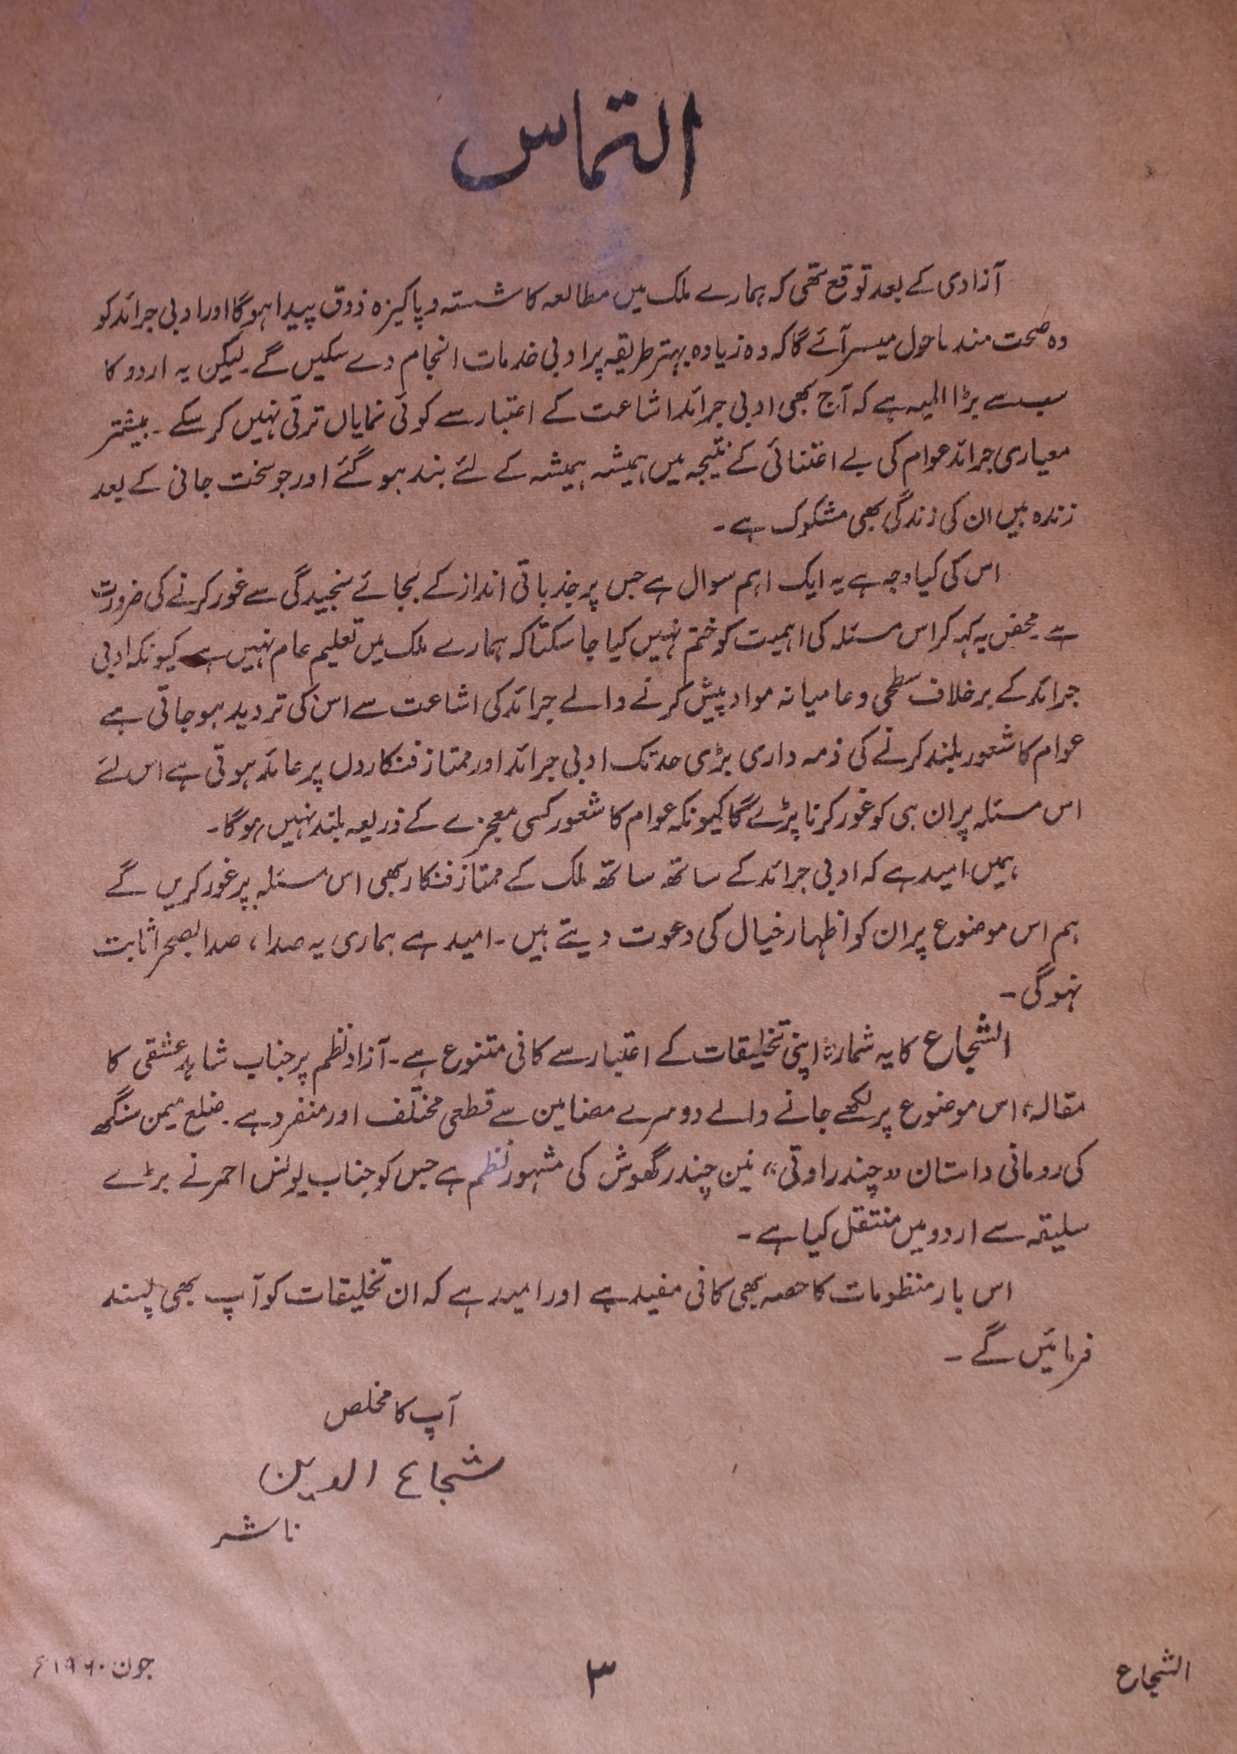 التماس
آزادی کے بعد توقع تھی کہ ہمارے ملک میں مطالعہ کا شستہ و پاکیزہ ذوق پیدا ہوگا اور ادبی جرائد کو
وہ صحت مند ماحول میسر آئے گا کہ وہ زیادہ بہتر طریقہ پر ادبی خدمات انجام دے سکیں گے۔ لیکن یہ اردو کا
سب سے بڑا المیہ ہے کہ آج بھی ادبی جرائد اشاعت کے اعتبار سے کوئی نمایاں ترقی نہیں کر سکے ۔ بیشتر
معیاری جرائد عوام کی بے اعتنائی کے نتیجہ میں ہمیشہ ہمیشہ کے لئے بند ہو گئے اور جو سخت جانی کے بعد
زندہ ہیں ان کی زندگی بھی مشکوک ہے ۔
اس کی کیا وجہ ہے یہ ایک اہم سوال ہے جس پر جذباتی انداز کے بجائے سنجیدگی سے غور کرنے کی ضرورت
ہے ۔ محض یہ کہہ کر اس مسئلہ کی اہمیت کو ختم نہیں کیا جا سکتا کہ ہمارے ملک میں تعلیم عام نہیں ہے کیونکہ ادبی
جرائد کے برخلاف سطحی و عامیانہ مواد پیش کرنے والے جرائد کی اشاعت سے اس کی تردید ہو جاتی ہے
عوام کا شعور بلند کرنے کی ذمہ داری بڑی حد تک ادبی جرائد اور ممتاز فنکاروں پر عائد ہوتی ہے اس لئے
اس مسئلہ پر ان ہی کو غور کرنا پڑے گا کیونکہ عوام کا شعور کسی معجزے کے ذریعہ بلند نہیں ہوگا ۔
ہمیں امید ہے کہ ادبی جرائد کے ساتھ ساتھ ملک کے ممتاز فنکار بھی اس مسئلہ پر غور کریں گے
ہم اس موضوع پر ان کو اظہار خیال کی دعوت دیتے ہیں ۔ امید ہے ہماری یہ صدا، صدا بصحرا ثابت
نہوگی ۔
الشجاع کا یہ شمارہ اپنی تخلیقات کے اعتبار سے کافی متنوع ہے ۔ آزاد نظم پر جناب شاہد عشقی کا
مقالہ، اس موضوع پر لکھے جانے والے دوسرے مضامین سے قطعی مختلف اور منفرد ہے ۔ ضلع میمن سنگھ
کی رومانی داستان "چندراوتی" نین چندر گھوش کی مشہور نظم ہے جس کو جناب یونس احمر نے بڑے
سلیقہ سے اردو میں منتقل کیا ہے ۔
اس بار منظومات کا حصہ بھی کافی مفید ہے اور امید ہے کہ ان تخلیقات کو آپ بھی پسند
فرمائیں گے ۔
آپ کا مخلص
شجاع الدین
ناشر
الشجاع
۳
جون ۱۹۶۰ء